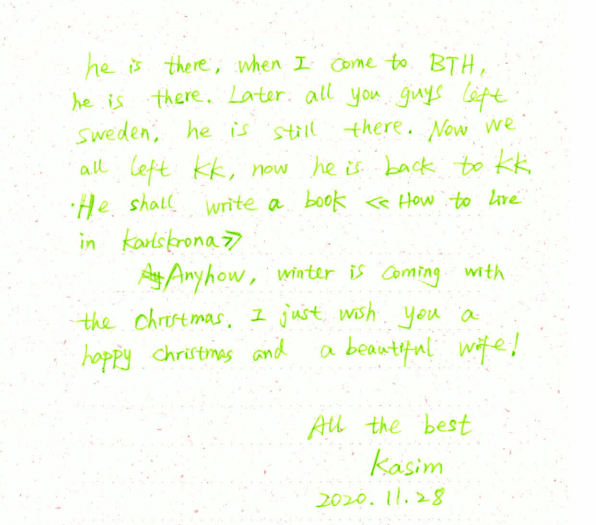 he is there, when I come to BTH,
he is there. Later all you guys left
Sweden, he is still there. Now we
all left KK, now he is back to KK.
He shall write a book << How to live
in Karlskrona >>
Anyhow, winter is coming with
the Christmas. I just wish you a
happy Christmas and a beautiful wife!
All the best
Kasim
2020.11.28